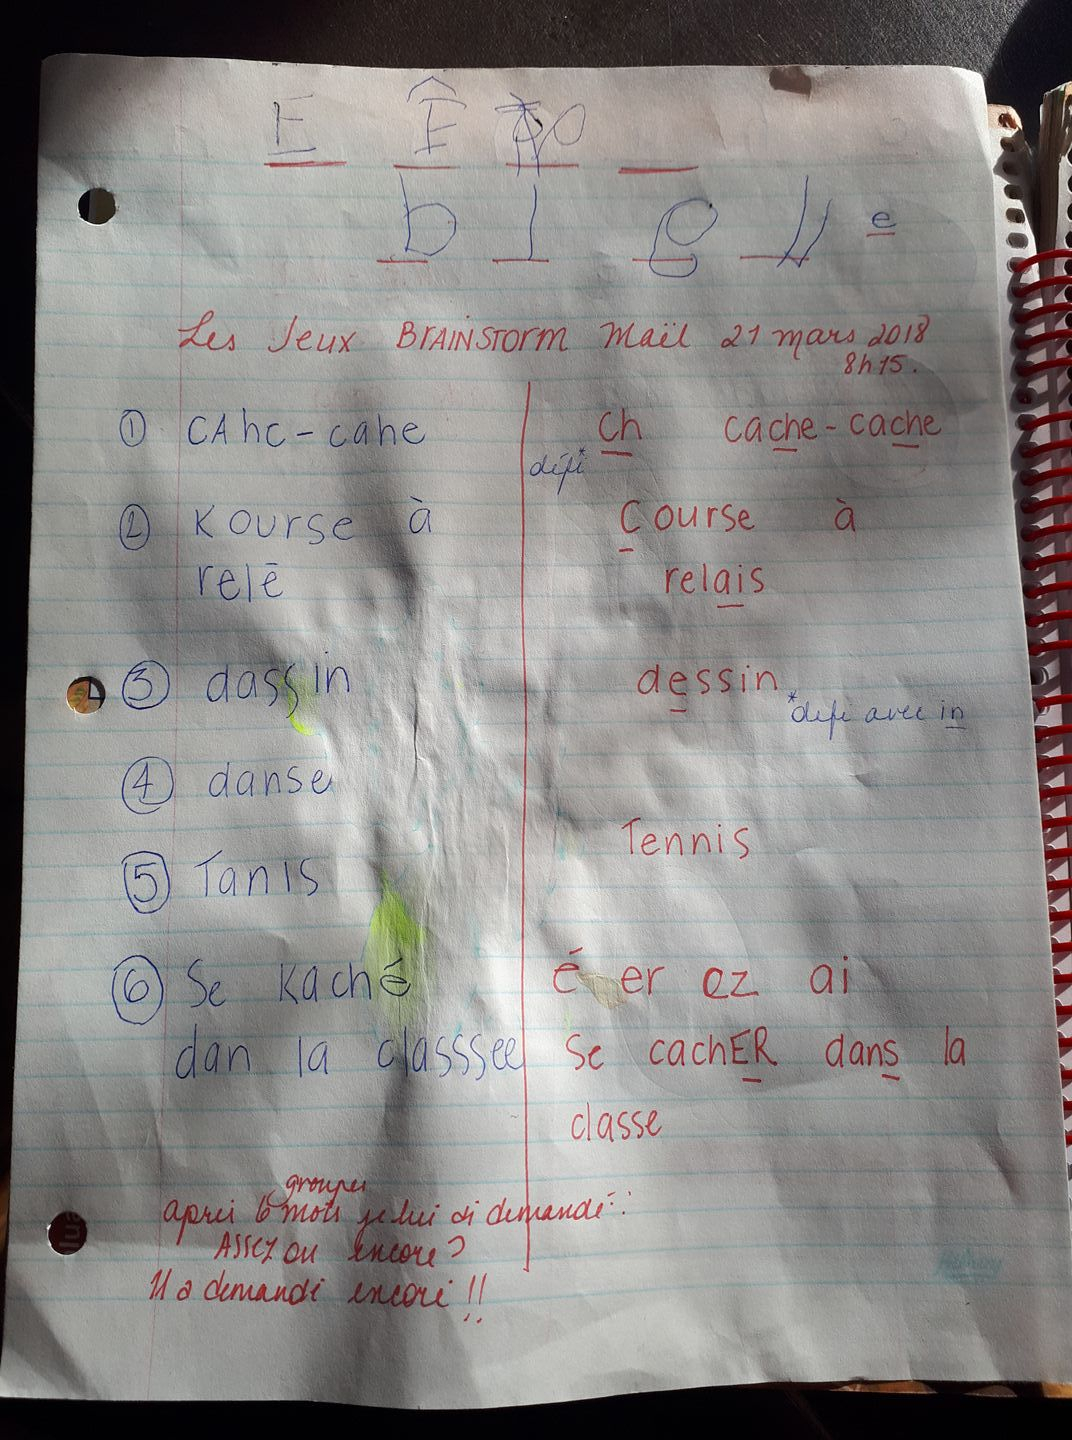 E Ê
b l g e
Les Jeux BRAINSTORM Maël 21 mars 2018
8h15.
① CAhc-cahe
ch cache-cache
défi*
② Kourse à
relē
Course à
relais
③ dassin
dessin
*defi avec in
④ danse
⑤ Tanis
Tennis
⑥ Se Kaché
dan la classsee
é er ez ai
Se cachER dans la
classe
groupes
après 6 mots je lui ai demandé:
ASSEZ ou encore?
Il a demandé encore!!